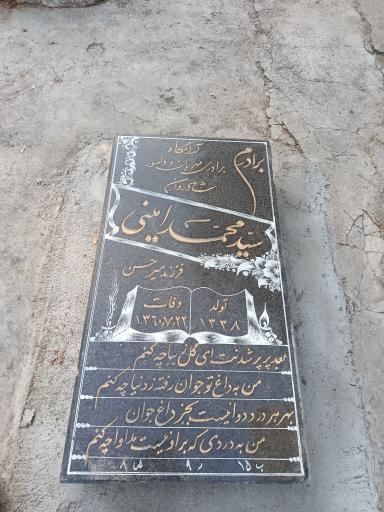 برادرم
آرامگاه
برادری مهربان و دلسوز
شادروان
سید محمد امینی
فرزند میرحسن
تولد
۱۳۳۸
وفات
۱۳۶۰/۷/۲۲
بعد پرپر شدنت ای گل زیبا چه کنم
من به داغ تو جوان رفته ز دنیا چه کنم
بهر هر درد دوائیست بجز داغ جوان
من به دردی که بر او نیست مداوا چه کنم